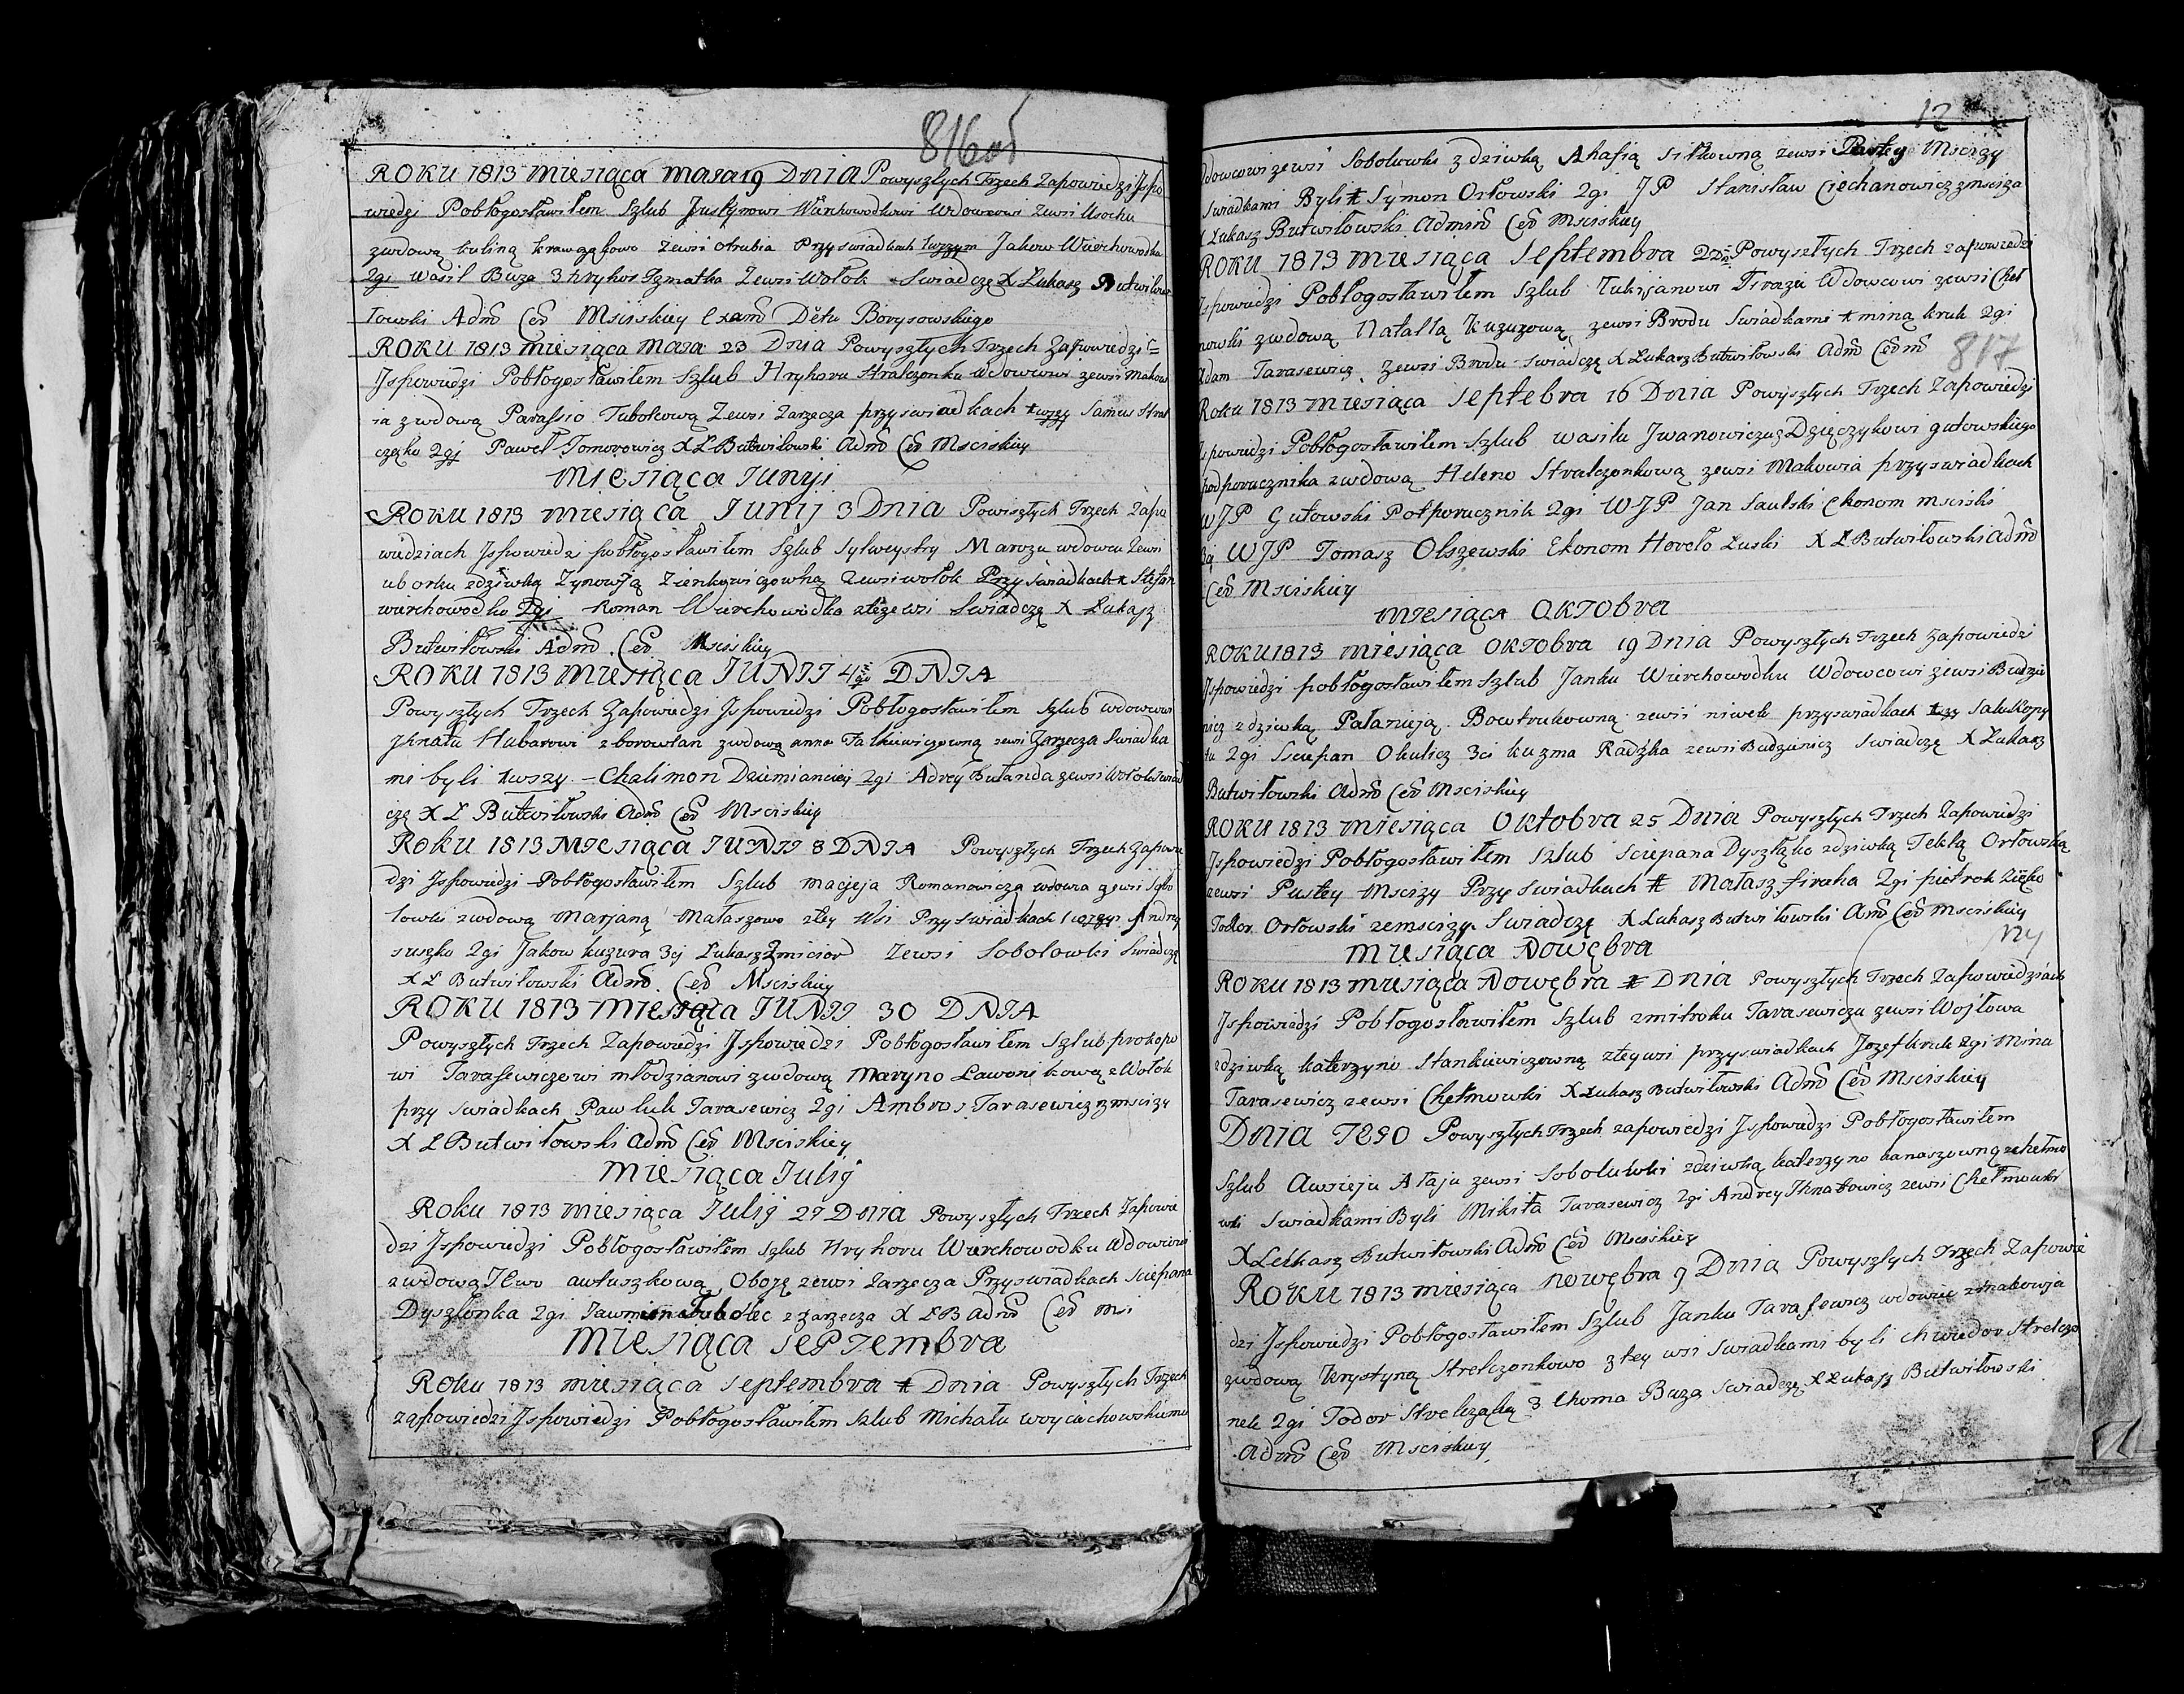 816 об
ROKU 1813 Miesiąca Maja 19 DNIA Powyszłych Trzech Zapowiedzi Jspo
wiedzi Pobłogosławiłem Szlub Justynowi Wiarchowodkowi Wdowcowi Zewsi Usochu
zwdową kuliną krawzakowo Zewsi otrubia Przy swiadkach 1wszym Jakow Wierchowodka
2gi Wasil Buza 3 hryhor Szmatka Zewsi Wołok Swiadczę X Łukasz Butwiłow
łowski Admr Ceŕ Mściskiey Exam Dětu Borysowskiego
ROKU 1813 miesiąca Maja 23 Dnia Powyszłych Trzech Zapowiedzi
Jspowiedzi Pobłogosławiłem Szlub Hryhoru Stralczonku Wdowcowi zewsi Makow
ia zwdową Parassio Tubolcową Zewsi Zarzecza przy swiadkach 1wszy Samus Stral
częko 2gi Paweł Tomorowicz X Ł Butwiłowski Admr Ceŕ Msciskiey
Miesiąca Junyi
ROKU 1813 miesiąca Junij 3 Dnia Powiszłych Trzech Zapo
wiedziach Jspowiedzi pobłogosławiłem Szlub Sylweystry Marozu wdowcu Zewsi
uborku zdziwką Zynowją Zienkowiczowną Zewsi wołok Przy swiadkach 1 Stefan
wierchowodko 2gi Roman Wierchowodko ztezewsi Swiadczę X Łukasz
Butwiłowski Admr Ceŕ Msciskiey
ROKU 1813 Miesiąca JUNII 4 go DNIA
Powyszłych Trzech Zapowiedzi Jspowiedzi Pobłogosławiłem Szlub wdowcowi
Jhnatu Hubarowi zborowlan zwdową anno Falkiewiczowną zewsi Zarzecza Swiadka
mi byli 1wszy Chalimon Dziemianciey 2gi Adrey Bułanda zewsi Wołok Swiad
czę X Ł Butwiłowski Admr Ceŕ Msciskiey
ROKU 1813 Miesiąca JUNII 8 DNIA Powyszłych Trzech Zapowie
dzi Jspowiedzi Pobłogosławiłem Szlub macjeja Romanowicza wdowca zewsi Sobo
łowki zwdową Marjaną Mataszowo ztey Wsi Przy Swiadkach 1wszy Andrey
suszko 2gi Jakow kuzura 3ci Łukasz Zmicior Zewsi Sobolowki Swiadczę
X Ł Butwiłowski Admr Ceŕ Msciskiey
ROKU 1813 Miesiąca JUNII 30 DNIA
Powyszłych Trzech Zapowiedzi Jspowiedzi Pobłogosławiłem Szlub prokopo
wi Tarasewiczowi młodzianowi zwdową Maryno Ławonikową z Wołok
przy swiadkach Pawluk Tarasewicz 2gi Ambros Tarasewicz zmscizy
X Ł Butwiłowski Admr Ceŕ Msciskiey
Miesiąca Julij
Roku 1813 miesiąca Julij 27 Dnia Powyszłych Trzech Zapowie
dzi Jspowiedzi Pobłogosławiłem Szlub Hryhoru Wierchowodku Wdowcowi
zwdową Jewo autuszkową Oboję zewsi Zarzecza Przy swiadkach Sciepana
Dyszlonka 2gi Jawmin Tubolec z zarzecza X Ł B Admr Ceŕ Mś
Miesiąca Septembra
Roku 1813 miesiąca Septembra 1 Dnia Powyszłych Trzech
zapowiedzi Jspowiedzi Pobłogosławiłem Szlub Michału woyciechowskiemu
12
Wdowcowi zewsi Sobolowki zdziwką Ahafią Sitkowną zewsi Pustey Mscizy
Swiadkami Byli 1 Symon Orłowski 2gi JP Stanisław Ciechanowicz zmsciza
X Łukasz Butwiłowski Admin Ceŕ Msciskiey
ROKU 1813 Miesiąca Septembra 2 Dn Powyszłych Trzech zapowiedzi
Jspowiedzi Pobłogosławiłem Szlub Łukijanowi Tarazu Wdowcowi zewsi Cheł
mowki zwdową Natallą Kuzurową zewsi Brodu Swiadkami 1 mina kruk 2gi
Adam Tarasewicz Zewsi Brodu swiadczę X Łukasz Butwiłowski Admr Ceŕ m
817
Roku 1813 Miesiąca Septebra 16 Dnia Powyszłych Trzech Zapowiedzi
Jspowiedzi Pobłogosławiłem Szlub wasilu Jwanowiczu Dzięczykowi gutowskiego
podporucznika zwdową Heleno Stralczonkową zewsi Makowia przy swiadkach
WJP Gutowski Potporucznik 2gi WJP Jan Saulski Ekonom msciski
3ci WJP Tomasz Olszewski Ekonom Horełołuski X Ł Butwiłowski Admr
Ceŕ Msciskiey
Miesiąca Oktobra
ROKU 1813 miesiąca Oktobra 19 Dnia Powyszłych Trzech Zapowiedzi
Jspowiedzi pobłogosławiłem Szlub Janku Wierchowodku Wdowcowi zewsi Budzie
nicz zdziwką Pałanieją Bowtrukowną zewsi niwek przy swiadkach 1wszy Sałukopy
tu 2gi Sciepan Okulicz 3ci kuzma Radźka zewsi Budzienicz Swiadczę X Łukasz
Butwiłowski Admr Ceŕ Msciskiey
ROKU 1813 miesiąca Oktobra 25 Dnia Powyszłych Trzech Zapowiedzi
Jspowiedzi Pobłogosławiłem Szlub Sciepana Dyszląko zdziwką Teklą Orłowską
zewsi Pustey Mscizy Przy swiadkach 1 Matasz firaha 2gi pietrok Zięko
Todor Orłowski zemscizy Swiadczę X Łukasz Butwiłowski Amr Ceŕ Msciskiey
Miesiąca Nowębra
ROKU 1813 miesiąca Nowębra 1 Dnia Powyszłych Trzech Zapowiedziach
Jspowiedzi Pobłogosławiłem Szlub zmitroku Tarasewiczu zewsi Wojłowa
zdziwką katerzyno Stankiewiczowną zteywsi przy swiadkach Jozef kruk 2gi Mina
Tarasewicz zewsi Chełmowki X Łukasz Butwiłowski Admr Ceŕ Msciskiey
Dnia Powyszłych Trzech zapowiedzi Jspowiedzi Pobłogosławiłem
Szlub Awsieju Ałaju zewsi Soboluwki zdziwką katerzyno banaszowną zchełmo
wki Swiadkami Byli Mikita Tarasewicz 2gi Andrey Jhnatowicz zewsi Chełmowki
X Łukasz Butwiłowski Admr Ceŕ Msciskiey
ROKU 1813 miesiąca Nowębra 9 Dnia Powyszłych Trzech Zapowie
dzi Jspowiedzi Pobłogosławiłem Szlub Janku Tarasewicz wdowcu zmakowja
zwdową Krystyną Strelczonkowo ztey wsi Swiadkami byli chwiedor Strelczo
nek 2gi Todor Strelczaką 3 Choma Buza Swiadczę X Łukasz Butwiłowski
Admr Ceŕ Msciskiey